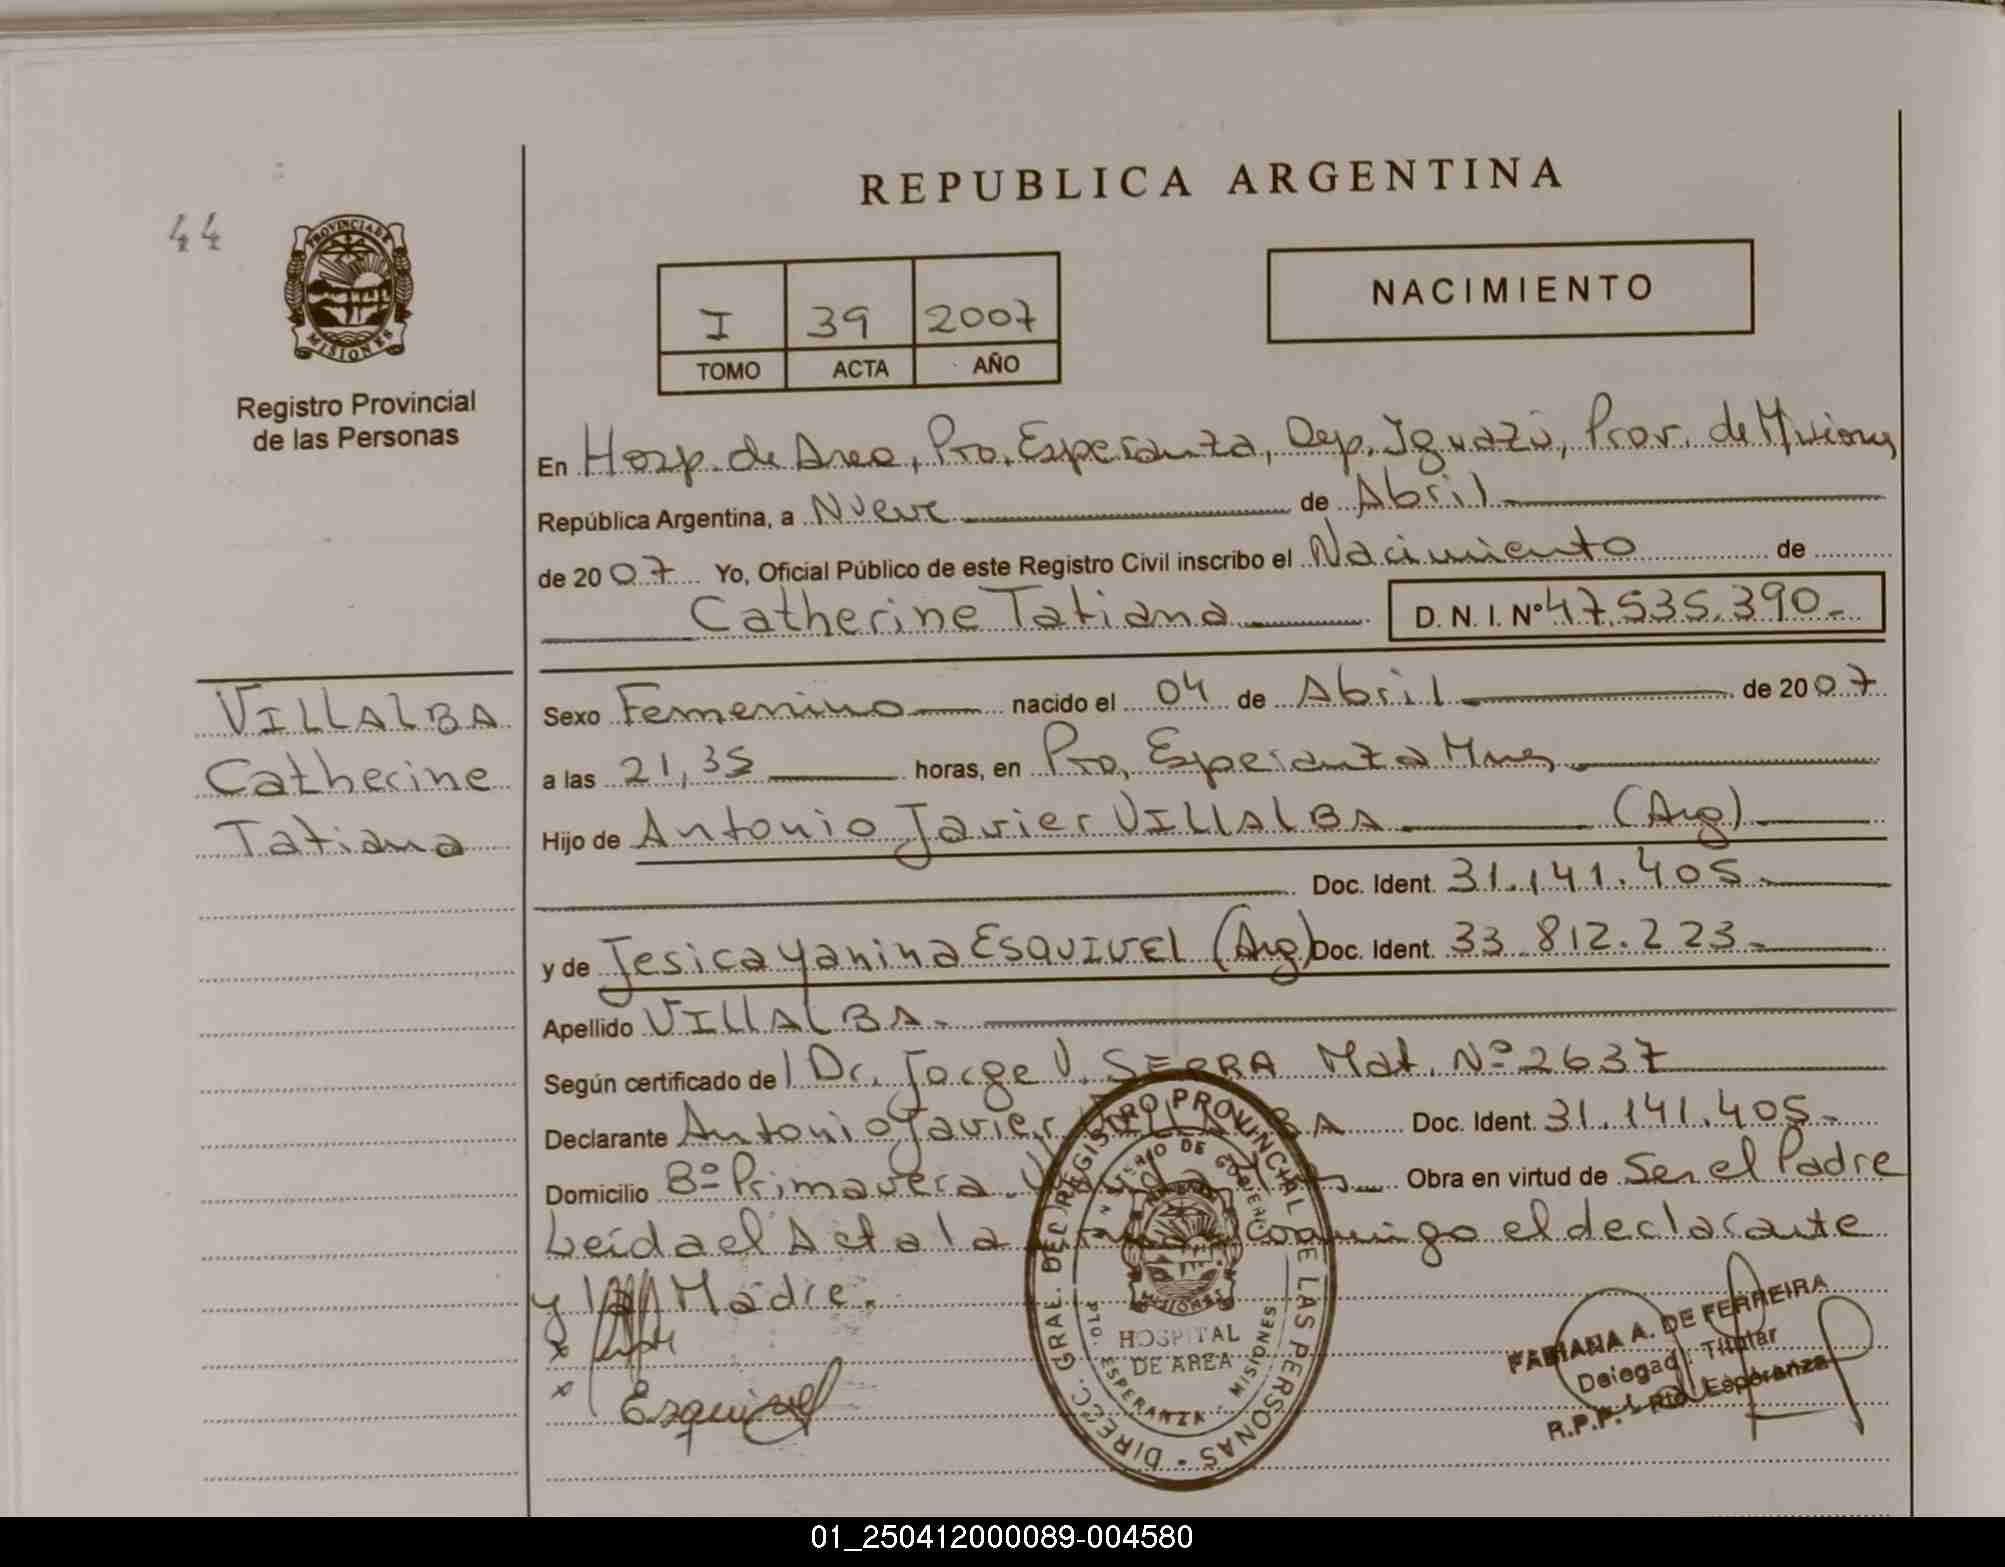 REPUBLICA ARGENTINA
44
PROVINCIA DE
MISIONES
Registro Provincial
de las Personas
I 39 2007
TOMO ACTA AÑO
NACIMIENTO
En Hosp. de Area, Pto. Esperanza, Dep. Iguazú, Prov. de Misiones
República Argentina, a Nueve de Abril
de 2007 Yo, Oficial Público de este Registro Civil inscribo el Nacimiento de
Catherine Tatiana D. N. I. Nº 47.535.390.-
VILLALBA
Catherine
Tatiana
Sexo Femenino nacido el 04 de Abril de 2007
a las 21,35 horas, en Pto. Esperanza Mnes
Hijo de Antonio Javier VILLALBA (Arg)
Doc. Ident. 31.141.405.-
y de Jesica Yanina ESQUIVEL (Arg) Doc. Ident. 33.812.223.-
Apellido VILLALBA.
Según certificado de Dr. Jorge V. SERRA Mat. Nº 2637
Declarante Antonio Javier VILLALBA Doc. Ident. 31.141.405.-
Domicilio Bº Primavera Obra en virtud de Ser el Padre
Leída el Acta la conmigo el declarante
y la Madre.
Esquivel
DIRECC. GRAL. DEL REGISTRO PROVINCIAL DE LAS PERSONAS
MINISTERIO DE GOBIERNO
MISIONES
HOSPITAL
DE AREA
PTO. ESPERANZA - MISIONES
FABIANA A. DE FERREIRA
Delegada Titular
R.P.P. - Pto. Esperanza
01_250412000089-004580